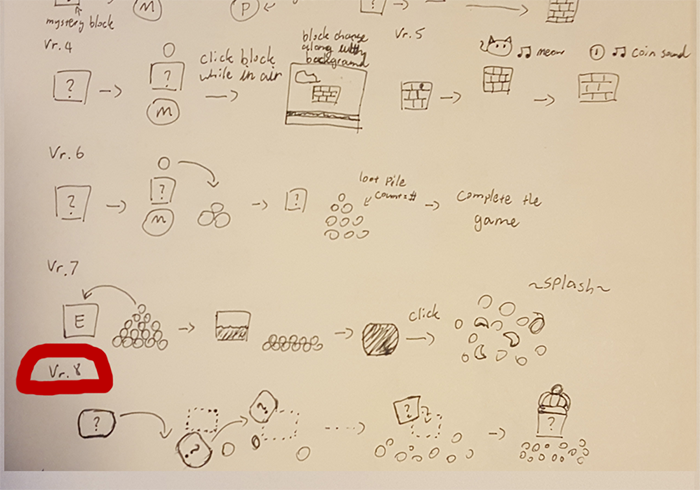 ?
mystery block
M
P
?
Vr.4
?
?
M
click block
while in air
block change
along with
background
Vr.5
meow
1
coin sound
Vr.6
?
?
M
?
loot pile
counts #
complete the
game
Vr.7
E
click
~splash~
Vr.8
?
?
?
?
?
?